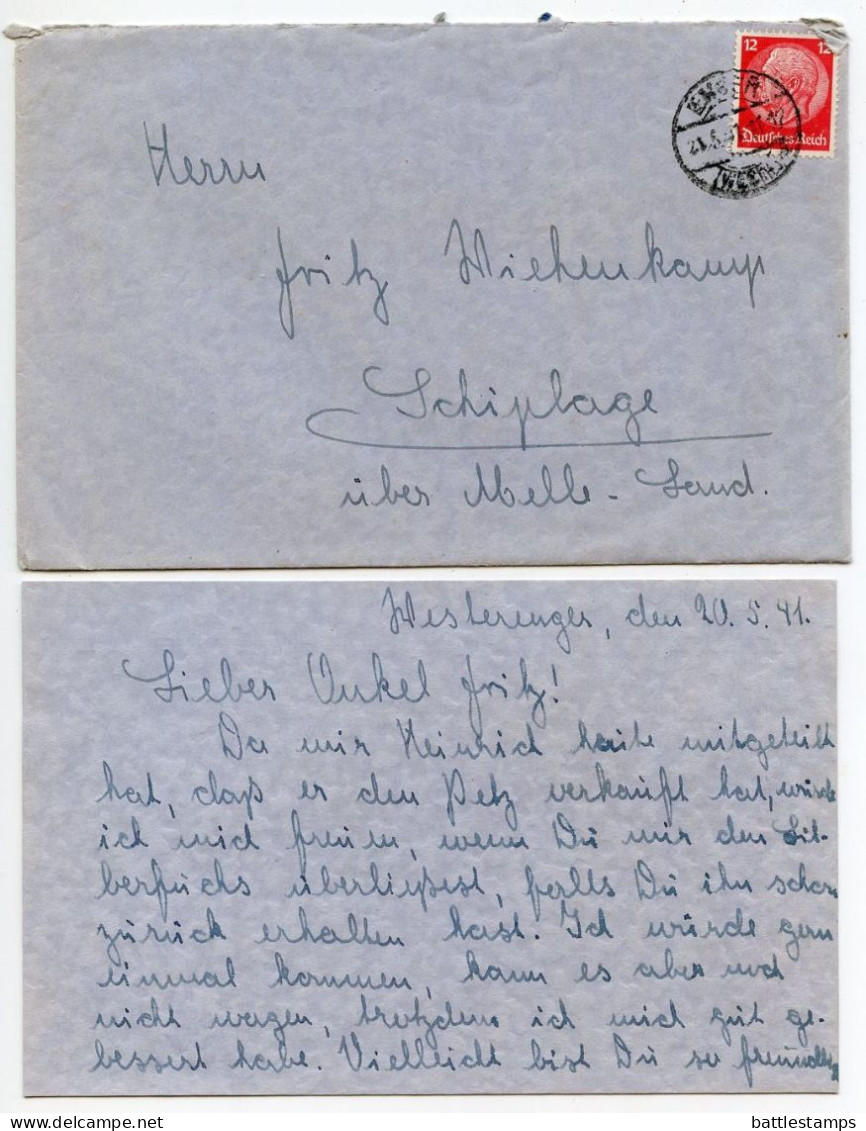 12 12
Deutsches Reich
ENGER
21.5.41
Herrn
Fritz Wiehenkamp
Schiplage
über Melle-Land.
Westerenger, den 20.5.41.
Lieber Onkel Fritz!
Da mir Heinrich heute mitgeteilt
hat, daß er den Petz verkauft hat, würde
ich mich freuen, wenn Du mir den Sil-
berfuchs überließest, falls Du ihn schon
zurück erhalten hast. Ich würde gern
einmal kommen, kann es aber noch
nicht wagen, trotzdem ich mich gut ge-
bessert habe. Vielleicht bist Du so
battlestamps